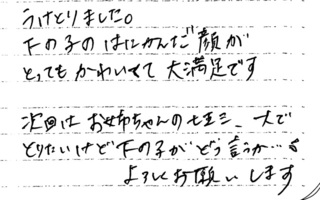 うけとりました。
下の子のはにかんだ顔が
とってもかわいくて大満足です
次回はお姉ちゃんの七五三、大で
とりたいけど下の子がどう言うか…
よろしくお願いします